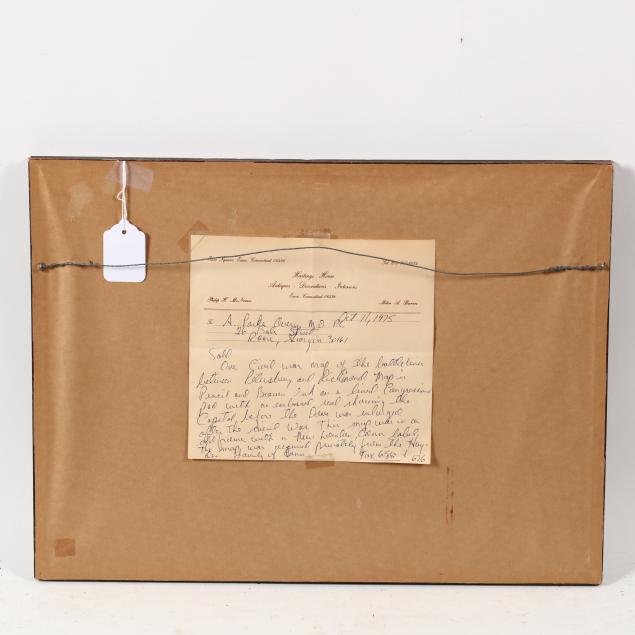 Square, Essex, Connecticut 06426
Heritage House
Antiques - Decorations - Interiors
Essex, Connecticut 06426
Philip H. McNemer
Miles A. Barron
Oct 11, 1975
To A. Park Overy M.D. P.C.
Street
Rome, Georgia 30161
Sold
One Civil war map of the battle lines
between Petersburg and Richmond Map in
Pencil and Brown Ink on a lined Congressional
Pad with an embossed seal showing the
Capitol before the Dome was enlarged
after the Civil War. This map was in an
old frame with a New London Conn label.
The map was acquired privately from the Hay-
den Family of Conn
Tax